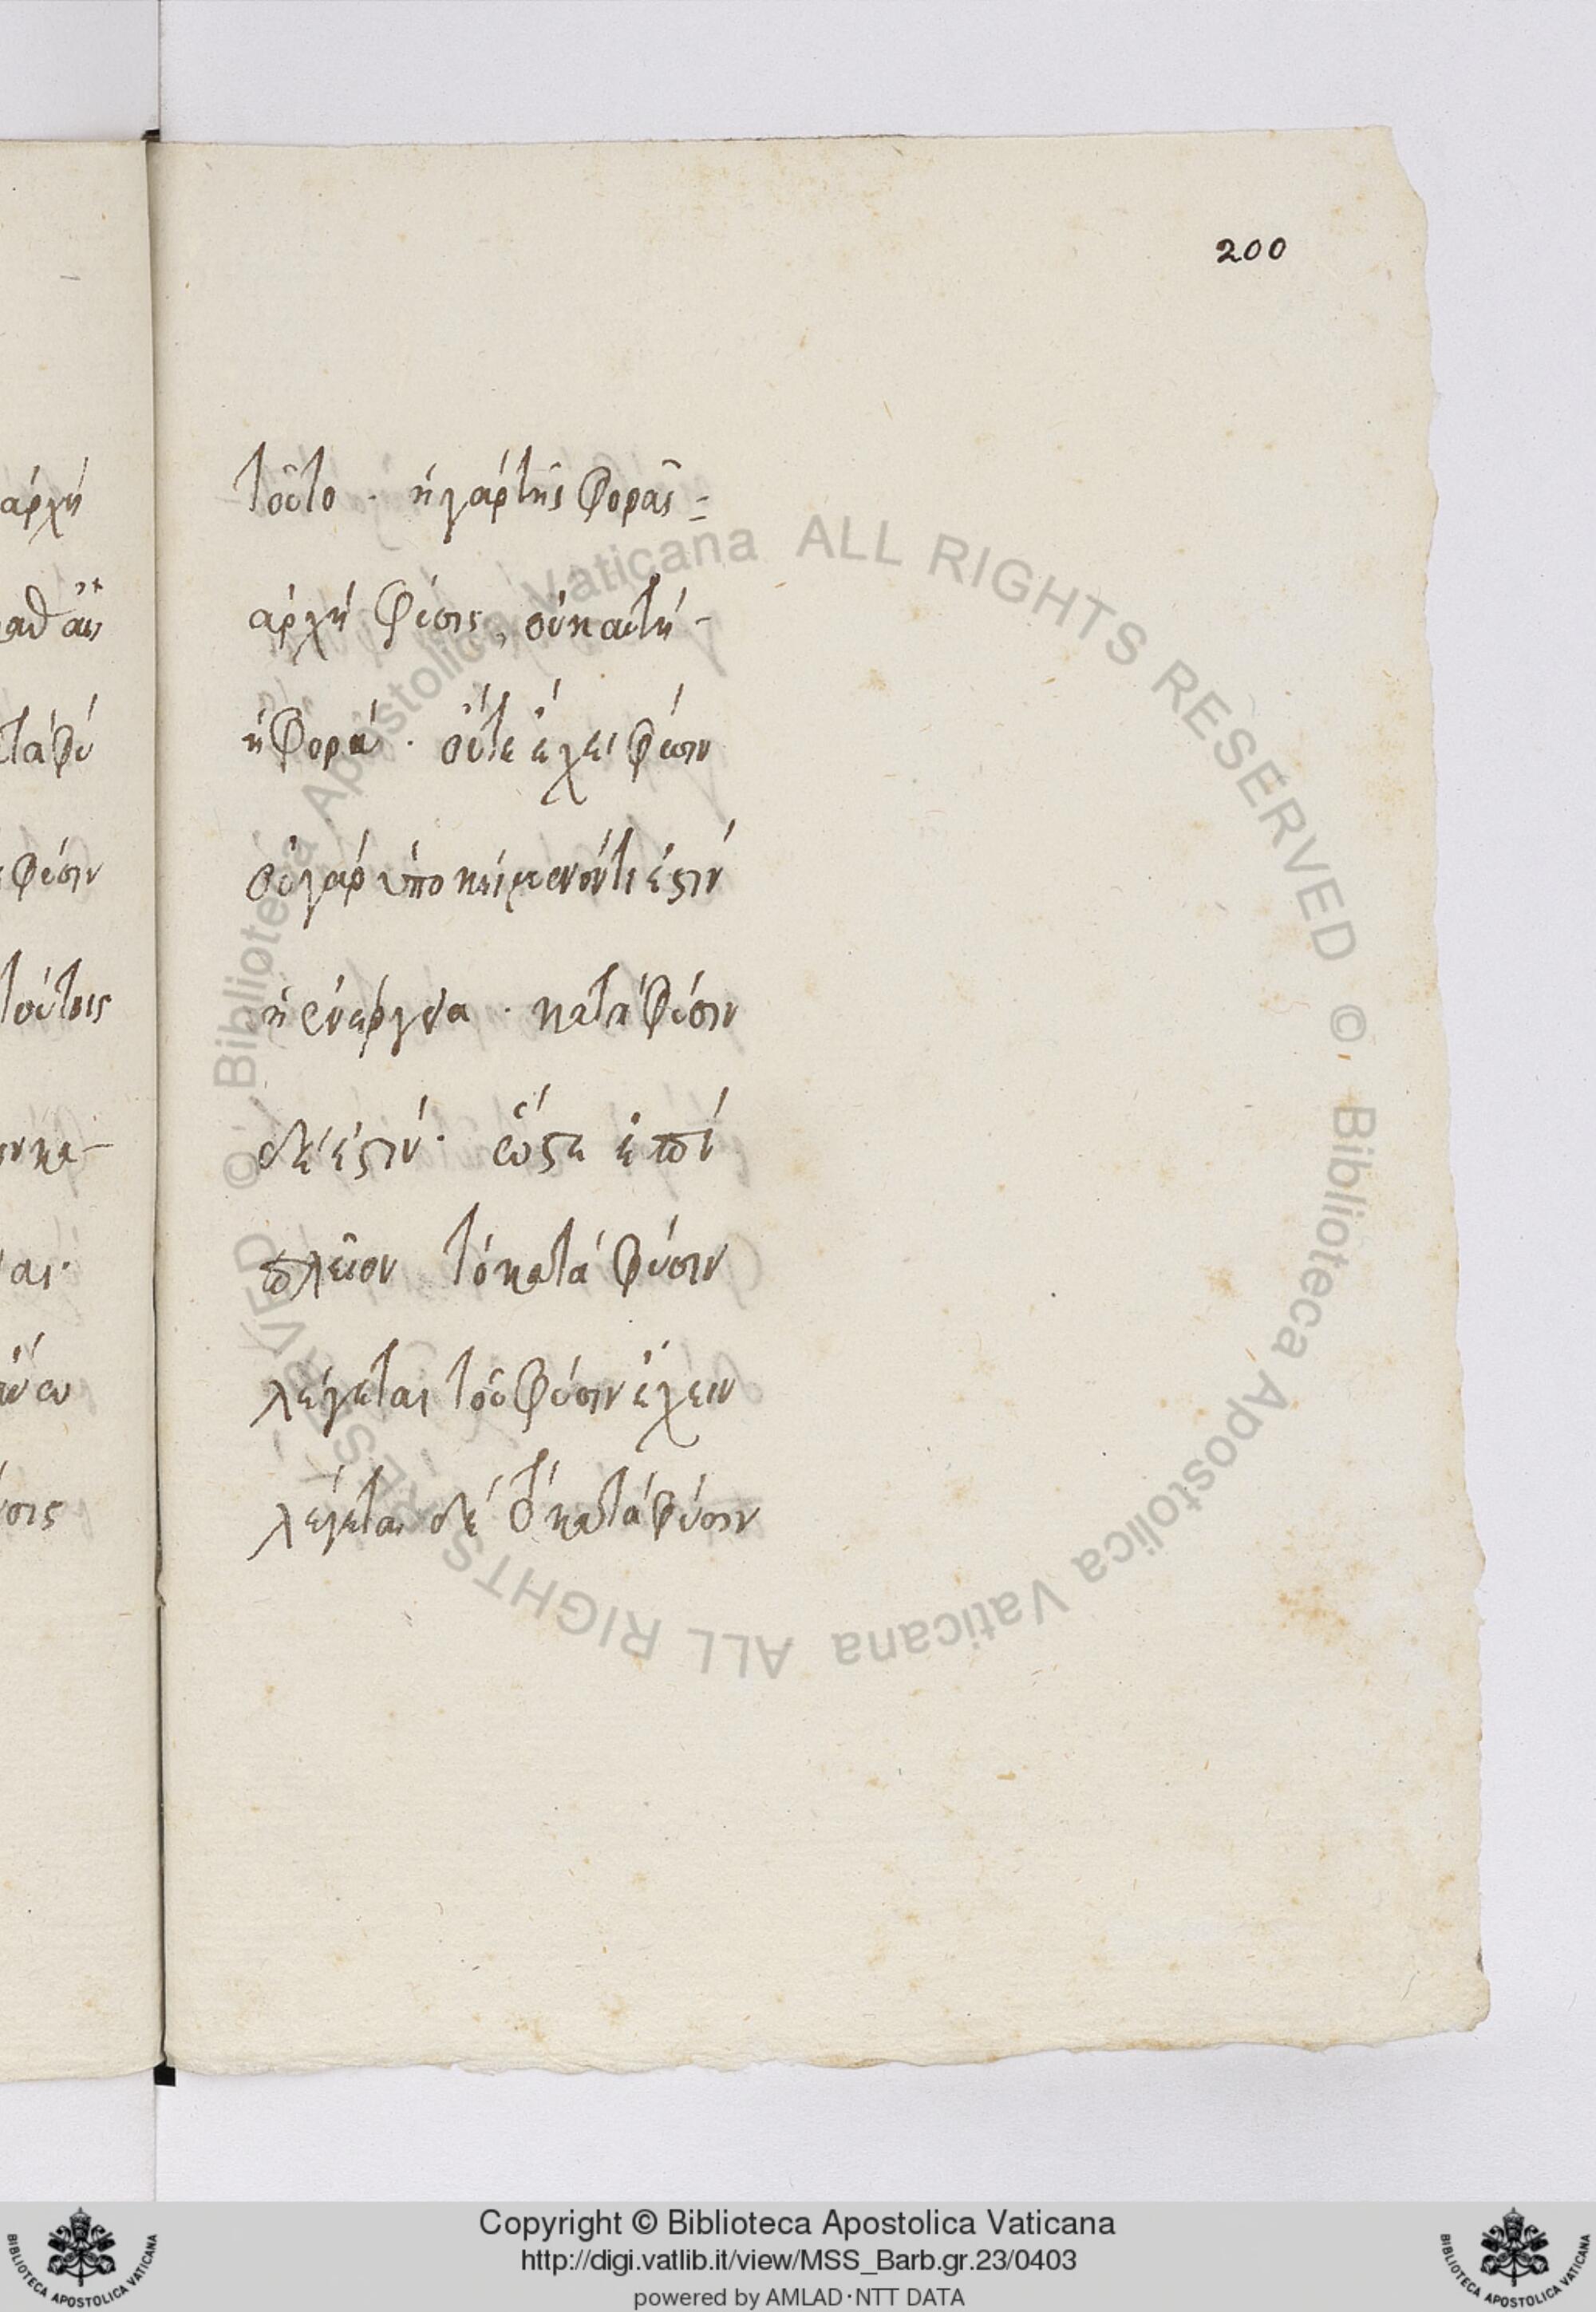 200
αρχή
καθ αὑ
τάφύ
φύσιν
τούτοις
αι·
άνω
τοῦτο · ἡ γάρ τῆς φορᾶς
αρχή φύσις, οὐκ αυτή -
ἡ φορά · ούτε έχει φύσιν
οὐ γάρ υποκείμενόν τι εστίν
ἡ ενέργεια · κατά φύσιν
δέ εστίν · ώστε επί
πλεῖον τό κατά φύσιν
λέγεται τοῦ φύσιν έχειν
λέγεται δέ τό κατά φύσιν
© Biblioteca Apostolica Vaticana ALL RIGHTS RESERVED
© Biblioteca Apostolica Vaticana ALL RIGHTS RESERVED
Copyright © Biblioteca Apostolica Vaticana
http://digi.vatlib.it/view/MSS_Barb.gr.23/0403
powered by AMLAD·NTT DATA
BIBLIOTECA APOSTOLICA VATICANA
BIBLIOTECA APOSTOLICA VATICANA